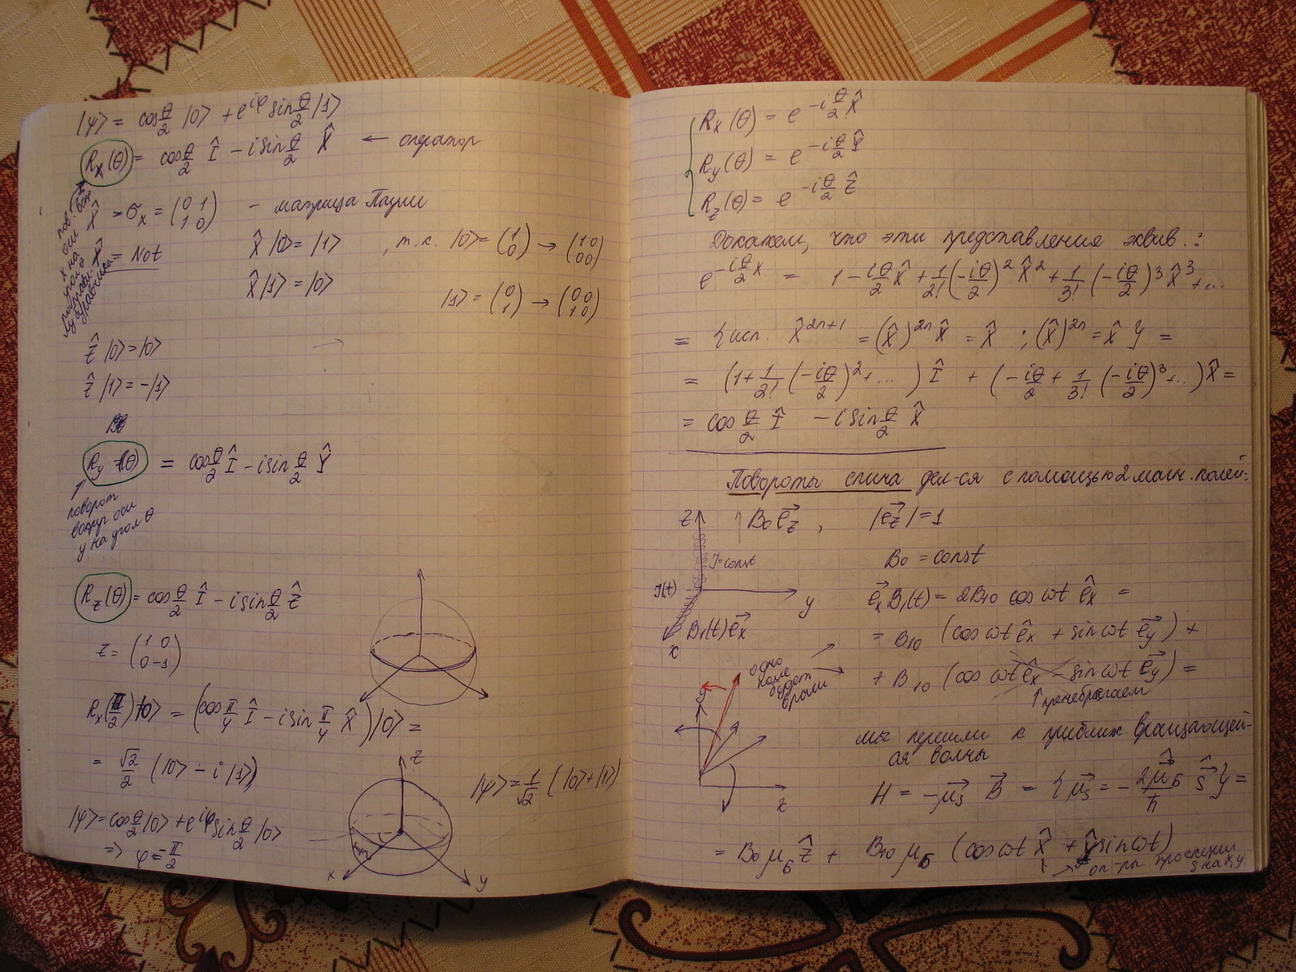 |ψ⟩ = cos θ/2 |0⟩ + e^{iφ} sin θ/2 |1⟩
R_x(θ) = cos θ/2 Î − i sin θ/2 X̂ ← оператор
X̂ → σ_x = (0 1 / 1 0) – матрица Паули
= Not X̂|0⟩ = |1⟩, т.к. |0⟩ = (1 / 0) → (1 0 / 0 0)
X̂|1⟩ = |0⟩
|1⟩ = (0 / 1) → (0 0 / 1 0)
Ẑ|0⟩ = |0⟩
Ẑ|1⟩ = −|1⟩
R_y(θ) = cos θ/2 Î − i sin θ/2 Ŷ
поворот
вокруг оси
y на угол θ
R_z(θ) = cos θ/2 Î − i sin θ/2 Ẑ
Z = (1 0 / 0 −1)
R_x(π/2)|0⟩ = (cos π/4 Î − i sin π/4 X̂)|0⟩ =
= √2/2 (|0⟩ − i|1⟩)
z
|ψ⟩ = 1/√2 (|0⟩ + |1⟩)
|ψ⟩ = cos θ/2 |0⟩ + e^{iφ} sin θ/2 |0⟩
⇒ φ = −π/2
x
y
R_x(θ) = e^{−i θ/2 X̂}
R_y(θ) = e^{−i θ/2 Ŷ}
R_z(θ) = e^{−i θ/2 Ẑ}
Докажем, что эти представления эквив.:
e^{−i θ/2 X} = 1 − iθ/2 X̂ + 1/2! (−iθ/2)² X̂² + 1/3! (−iθ/2)³ X̂³ + ...
= {исп. X̂^{2n+1} = (X̂)^{2n} X̂ = X̂ ; (X̂)^{2n} = X̂} =
= (1 + 1/2! (−iθ/2)² + ...) Î + (−iθ/2 + 1/3! (−iθ/2)³ + ..) X̂ =
= cos θ/2 Î − i sin θ/2 X̂
Повороты спина дел-ся с помощью 2 магн. полей:
z
B₀ e⃗_z , |e⃗_z| = 1
I = const
B₀ = const
I(t)
y
e⃗_x B₁(t) = 2B₁₀ cos ωt ê_x =
B₁(t) e⃗_x
x
= B₁₀ (cos ωt ê_x + sin ωt e⃗_y) +
одно
поле
будет
+ B₁₀ (cos ωt ê_x − sin ωt e⃗_y) =
↑ пренебрегаем
мы перешли к приближ. вращающей-
ая волны
z
H = −μ⃗_s B⃗ = {μ⃗_s = −2μ_Б/ħ ŝ} =
= B₀ μ_Б Ẑ + B₁₀ μ_Б (cos ωt X̂ + Ŷ sin ωt)
оп-ры проекции
s на x, y